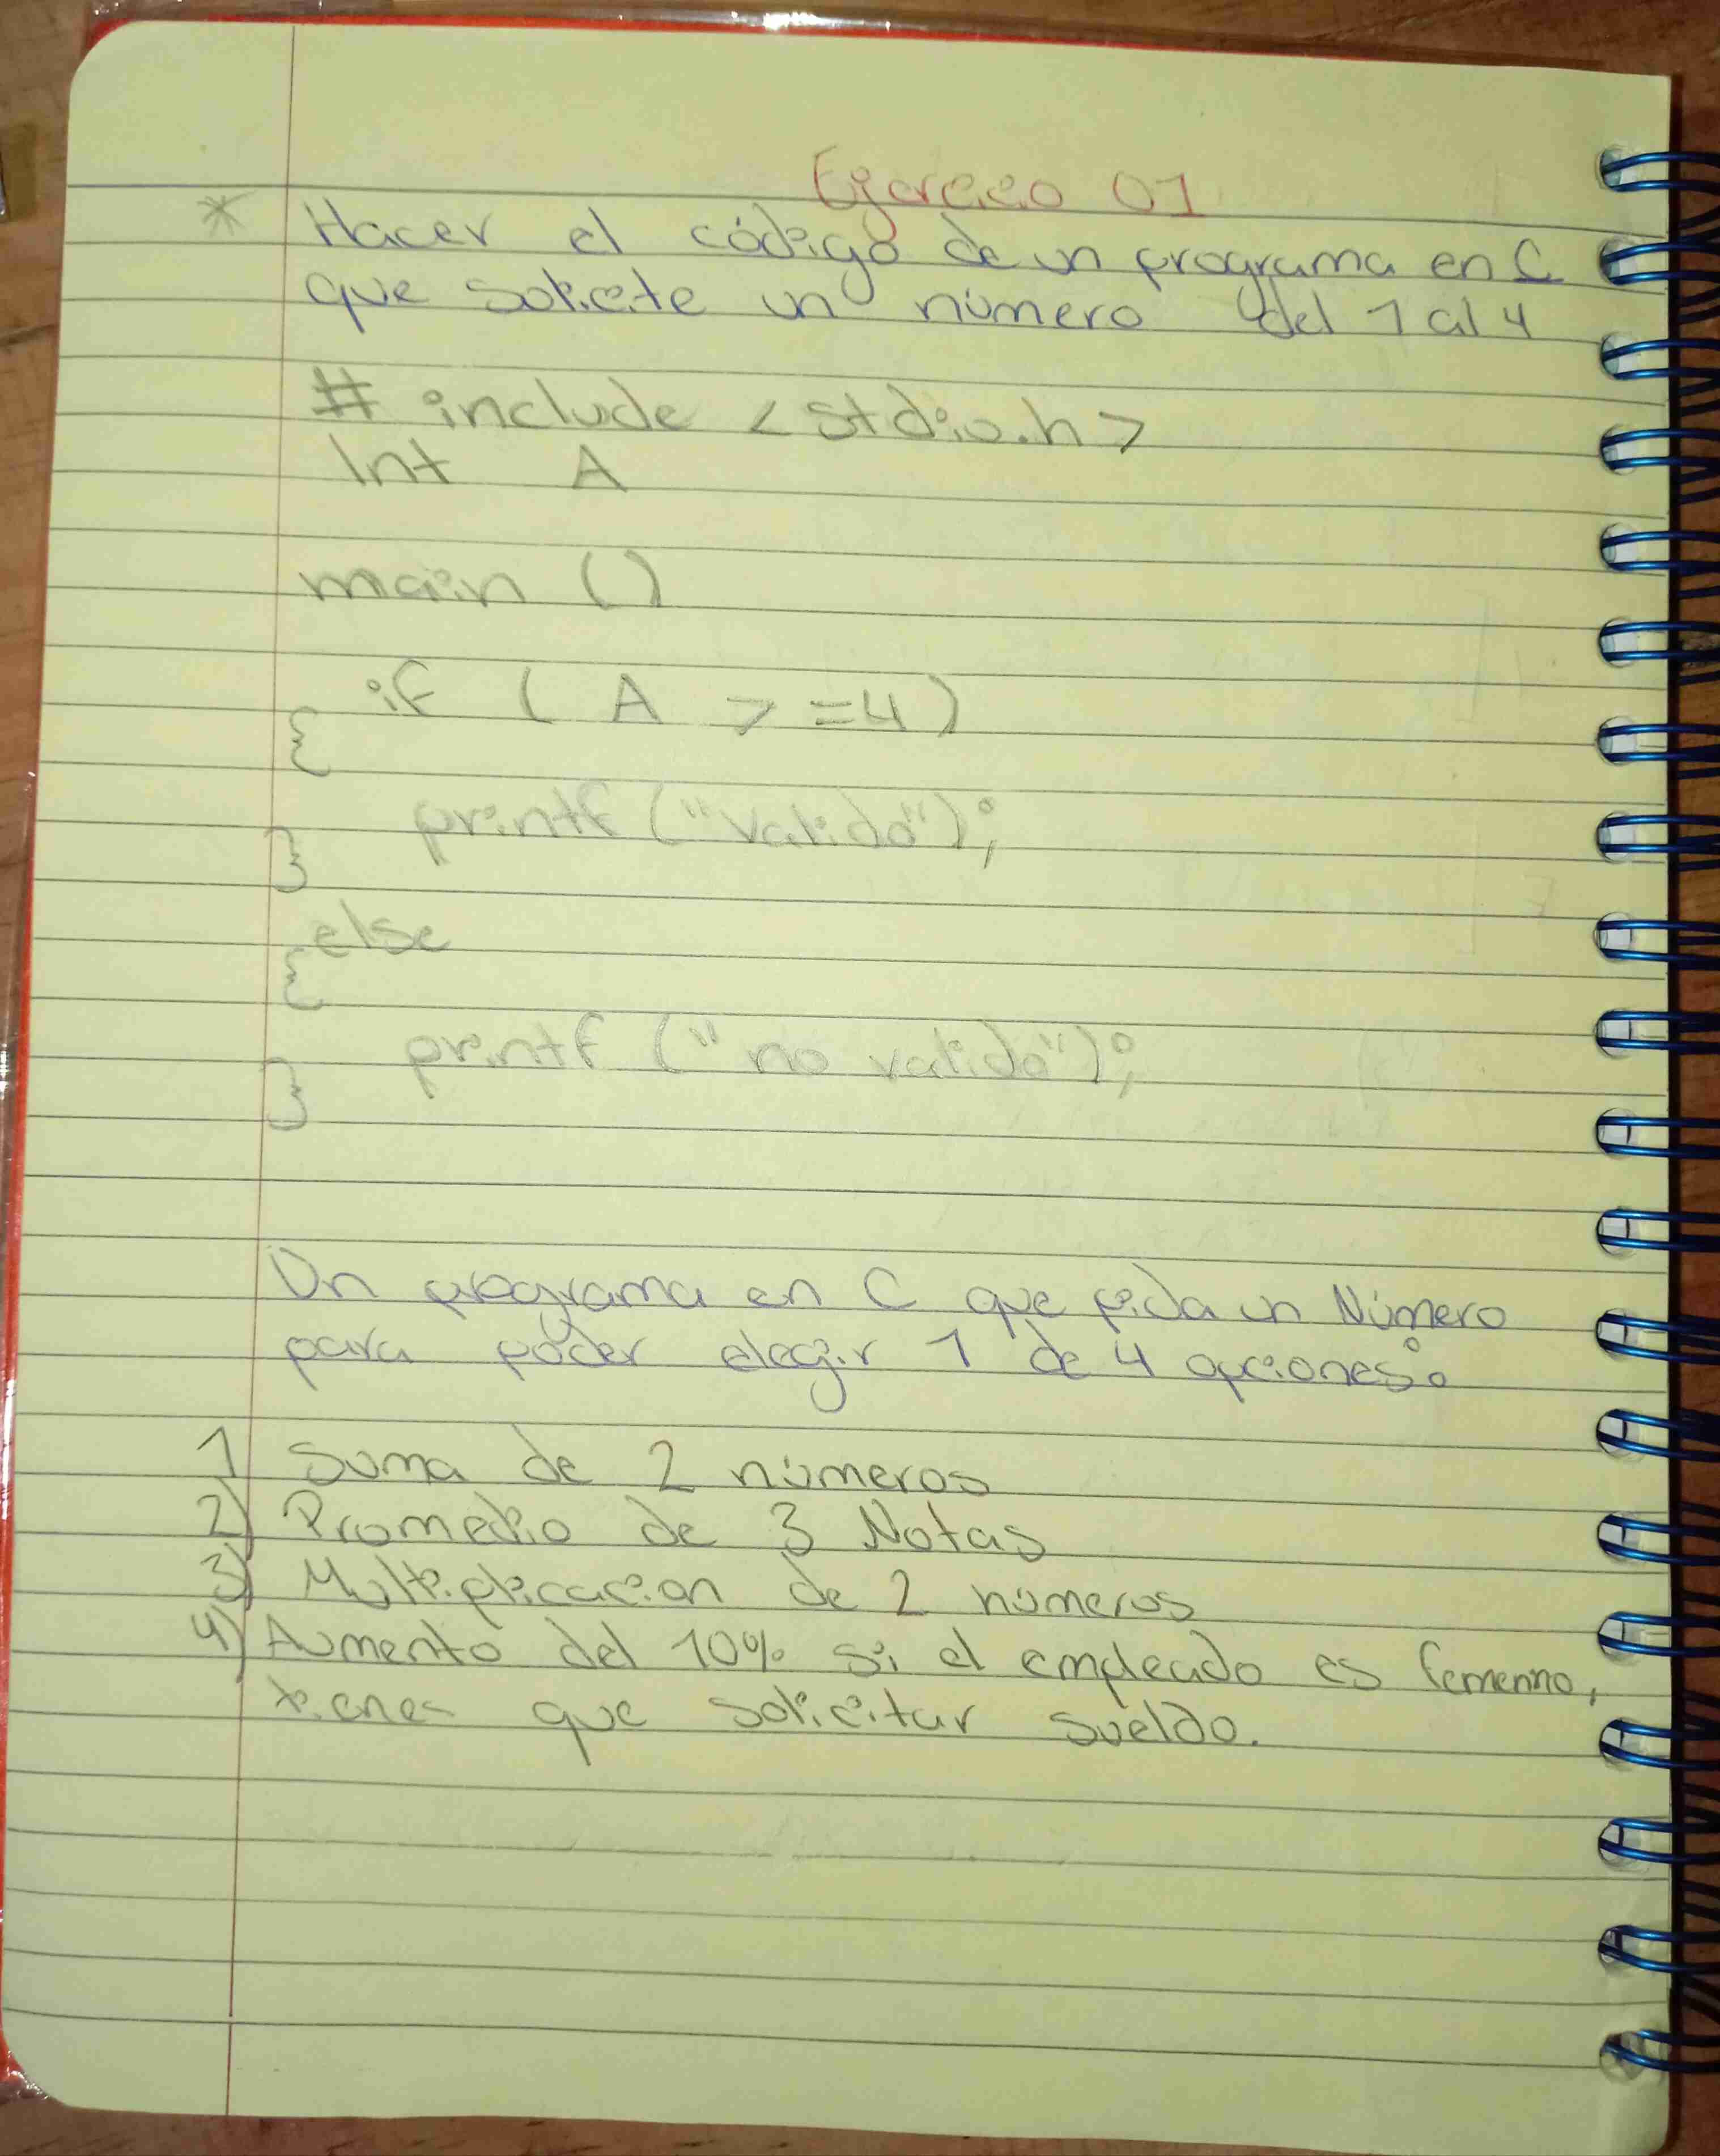 Ejercicio 01
* Hacer el código de un programa en C
que solicite un número del 1 al 4
# include < stdio.h >
Int A
main ()
if ( A > =4 )
{
printf ("valido");
}
else
{
printf ("no valido");
}
Un programa en C que pida un Número
para poder elegir 1 de 4 opciones:
1 Suma de 2 números
2) Promedio de 3 Notas
3) Multiplicacion de 2 números
4) Aumento del 10% si el empleado es femenno,
tienes que solicitar sueldo.